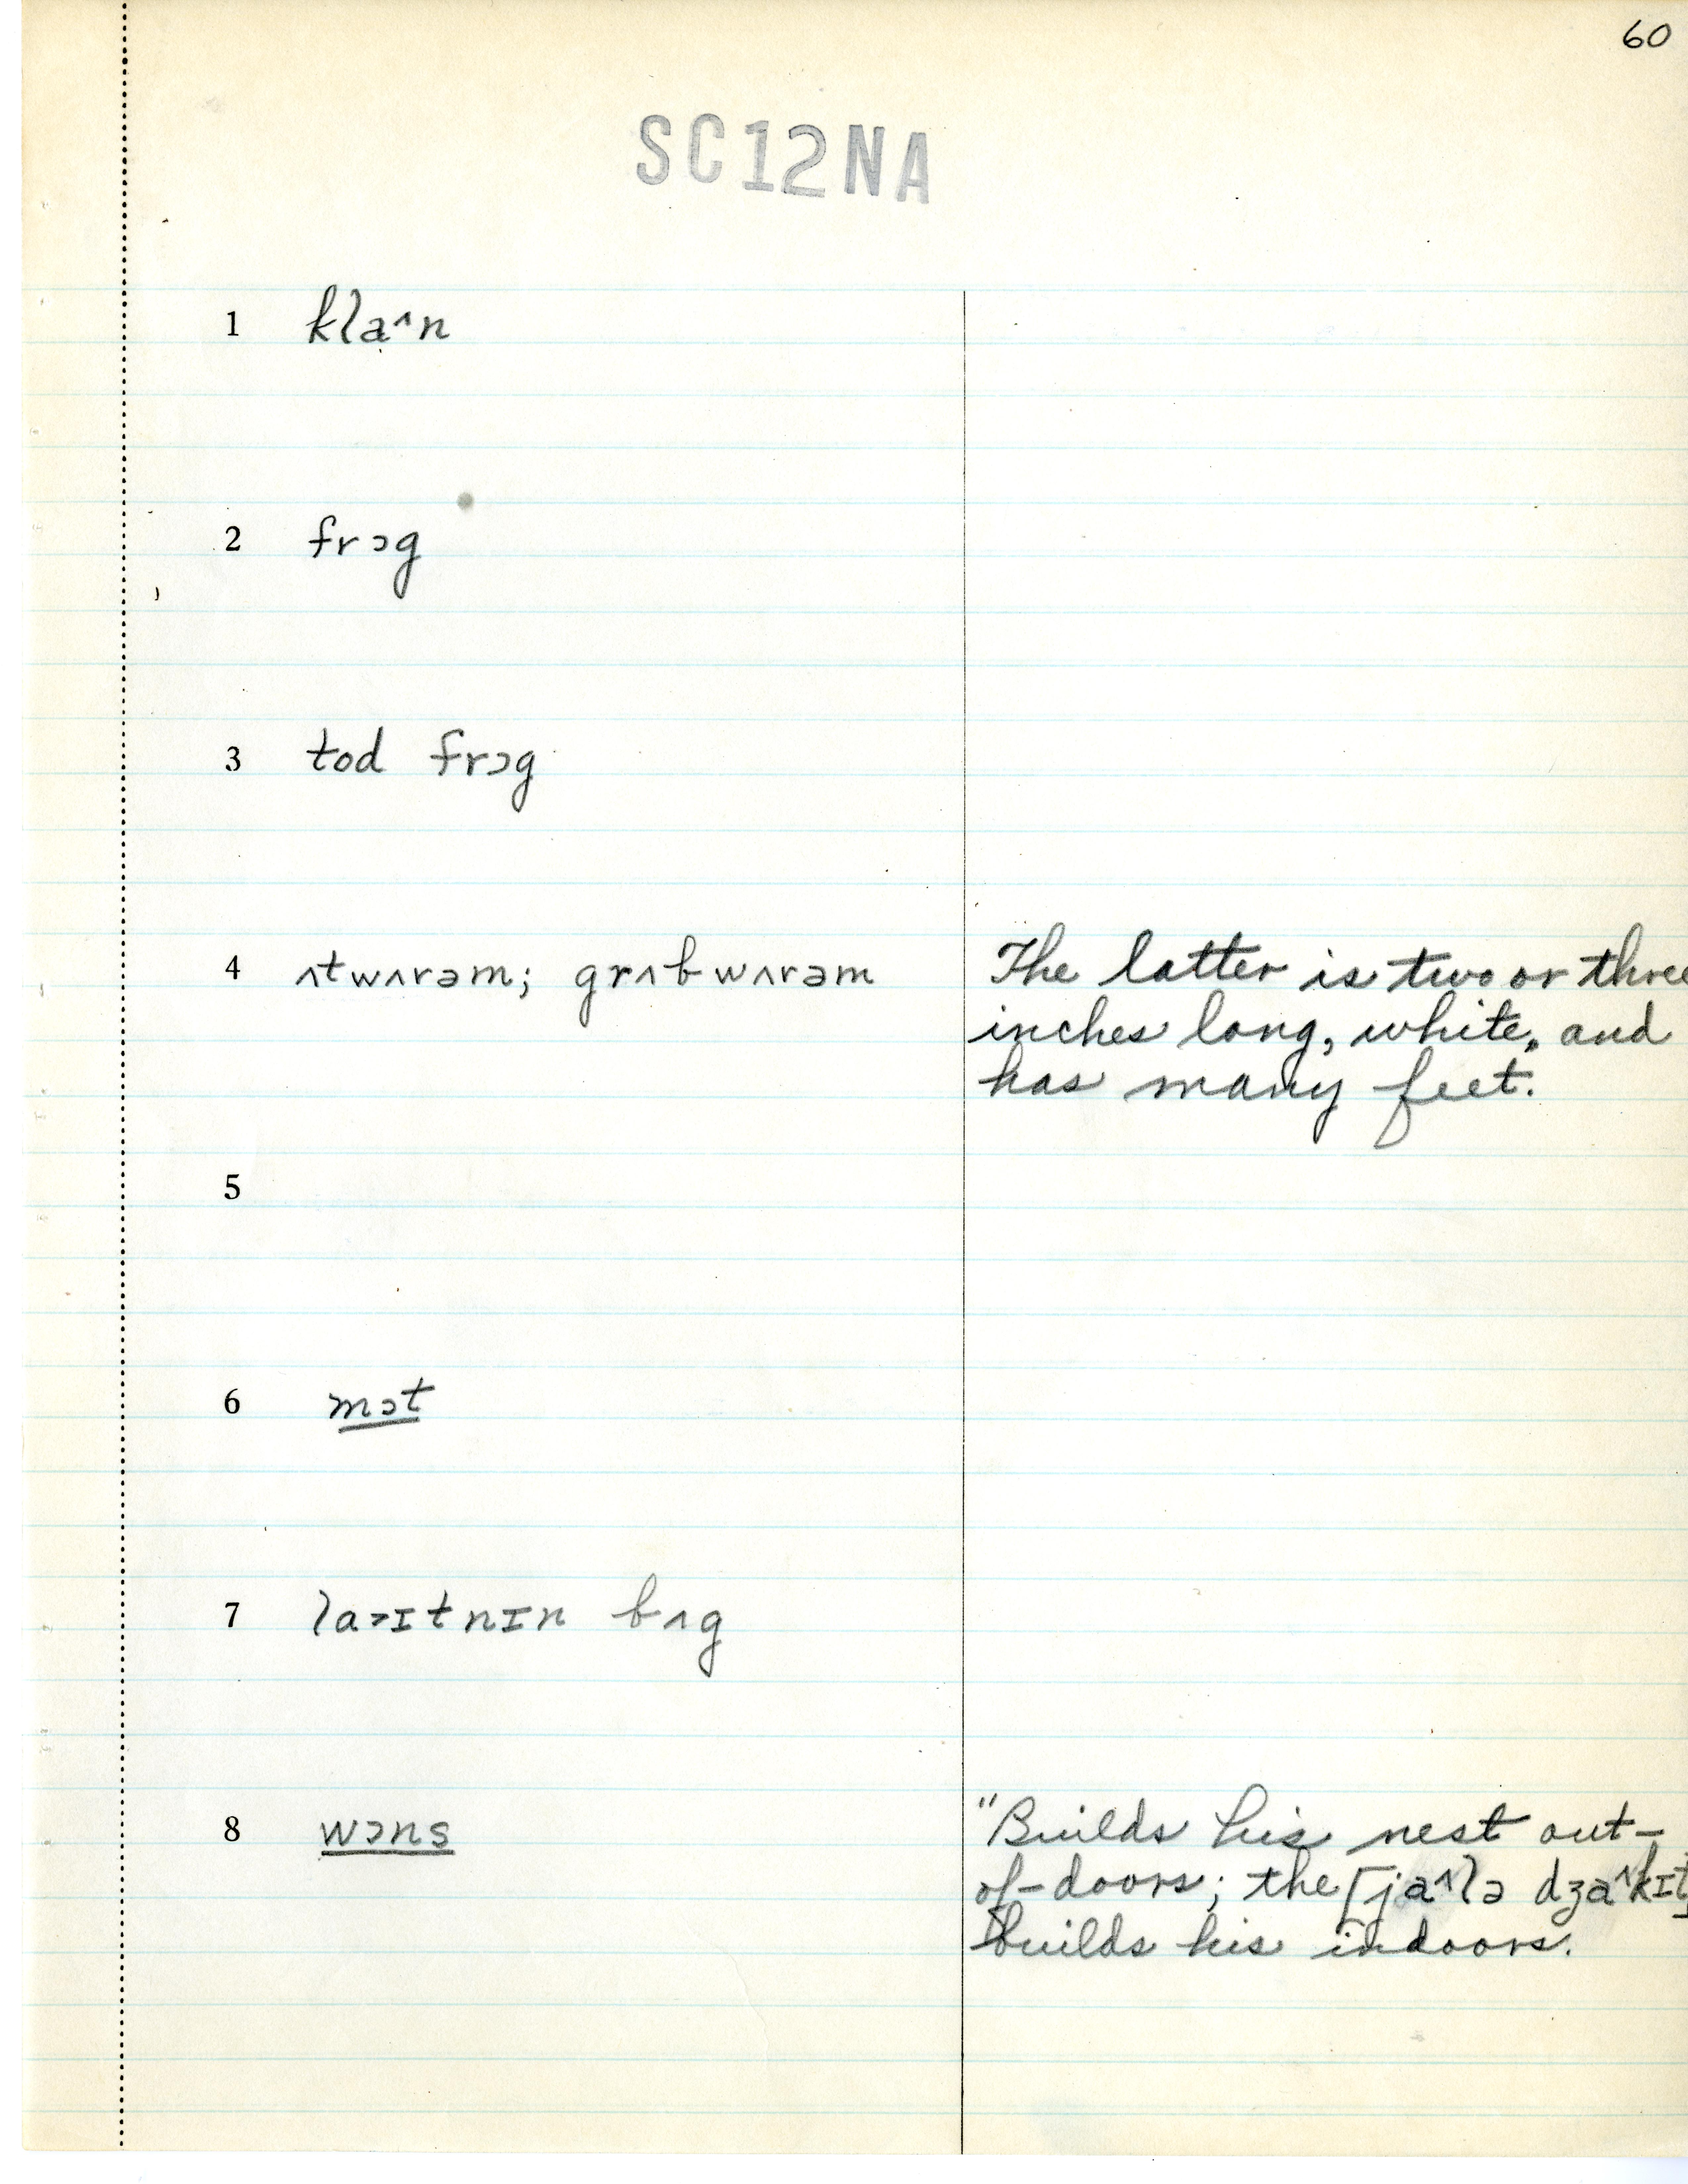 60
SC12NA
1 klaˆn
2 frɔg
3 tod frɔg
4 ʌtwʌrəm; grʌbwʌrəm The latter is two or three
inches long, white, and
has many feet.
5
6 mɔt
7 la˃ɪtnɪn bʌg
8 wɔns "Builds his nest out-
of-doors; the [jaˆlə dʒaˆkɪt]
builds his indoors.